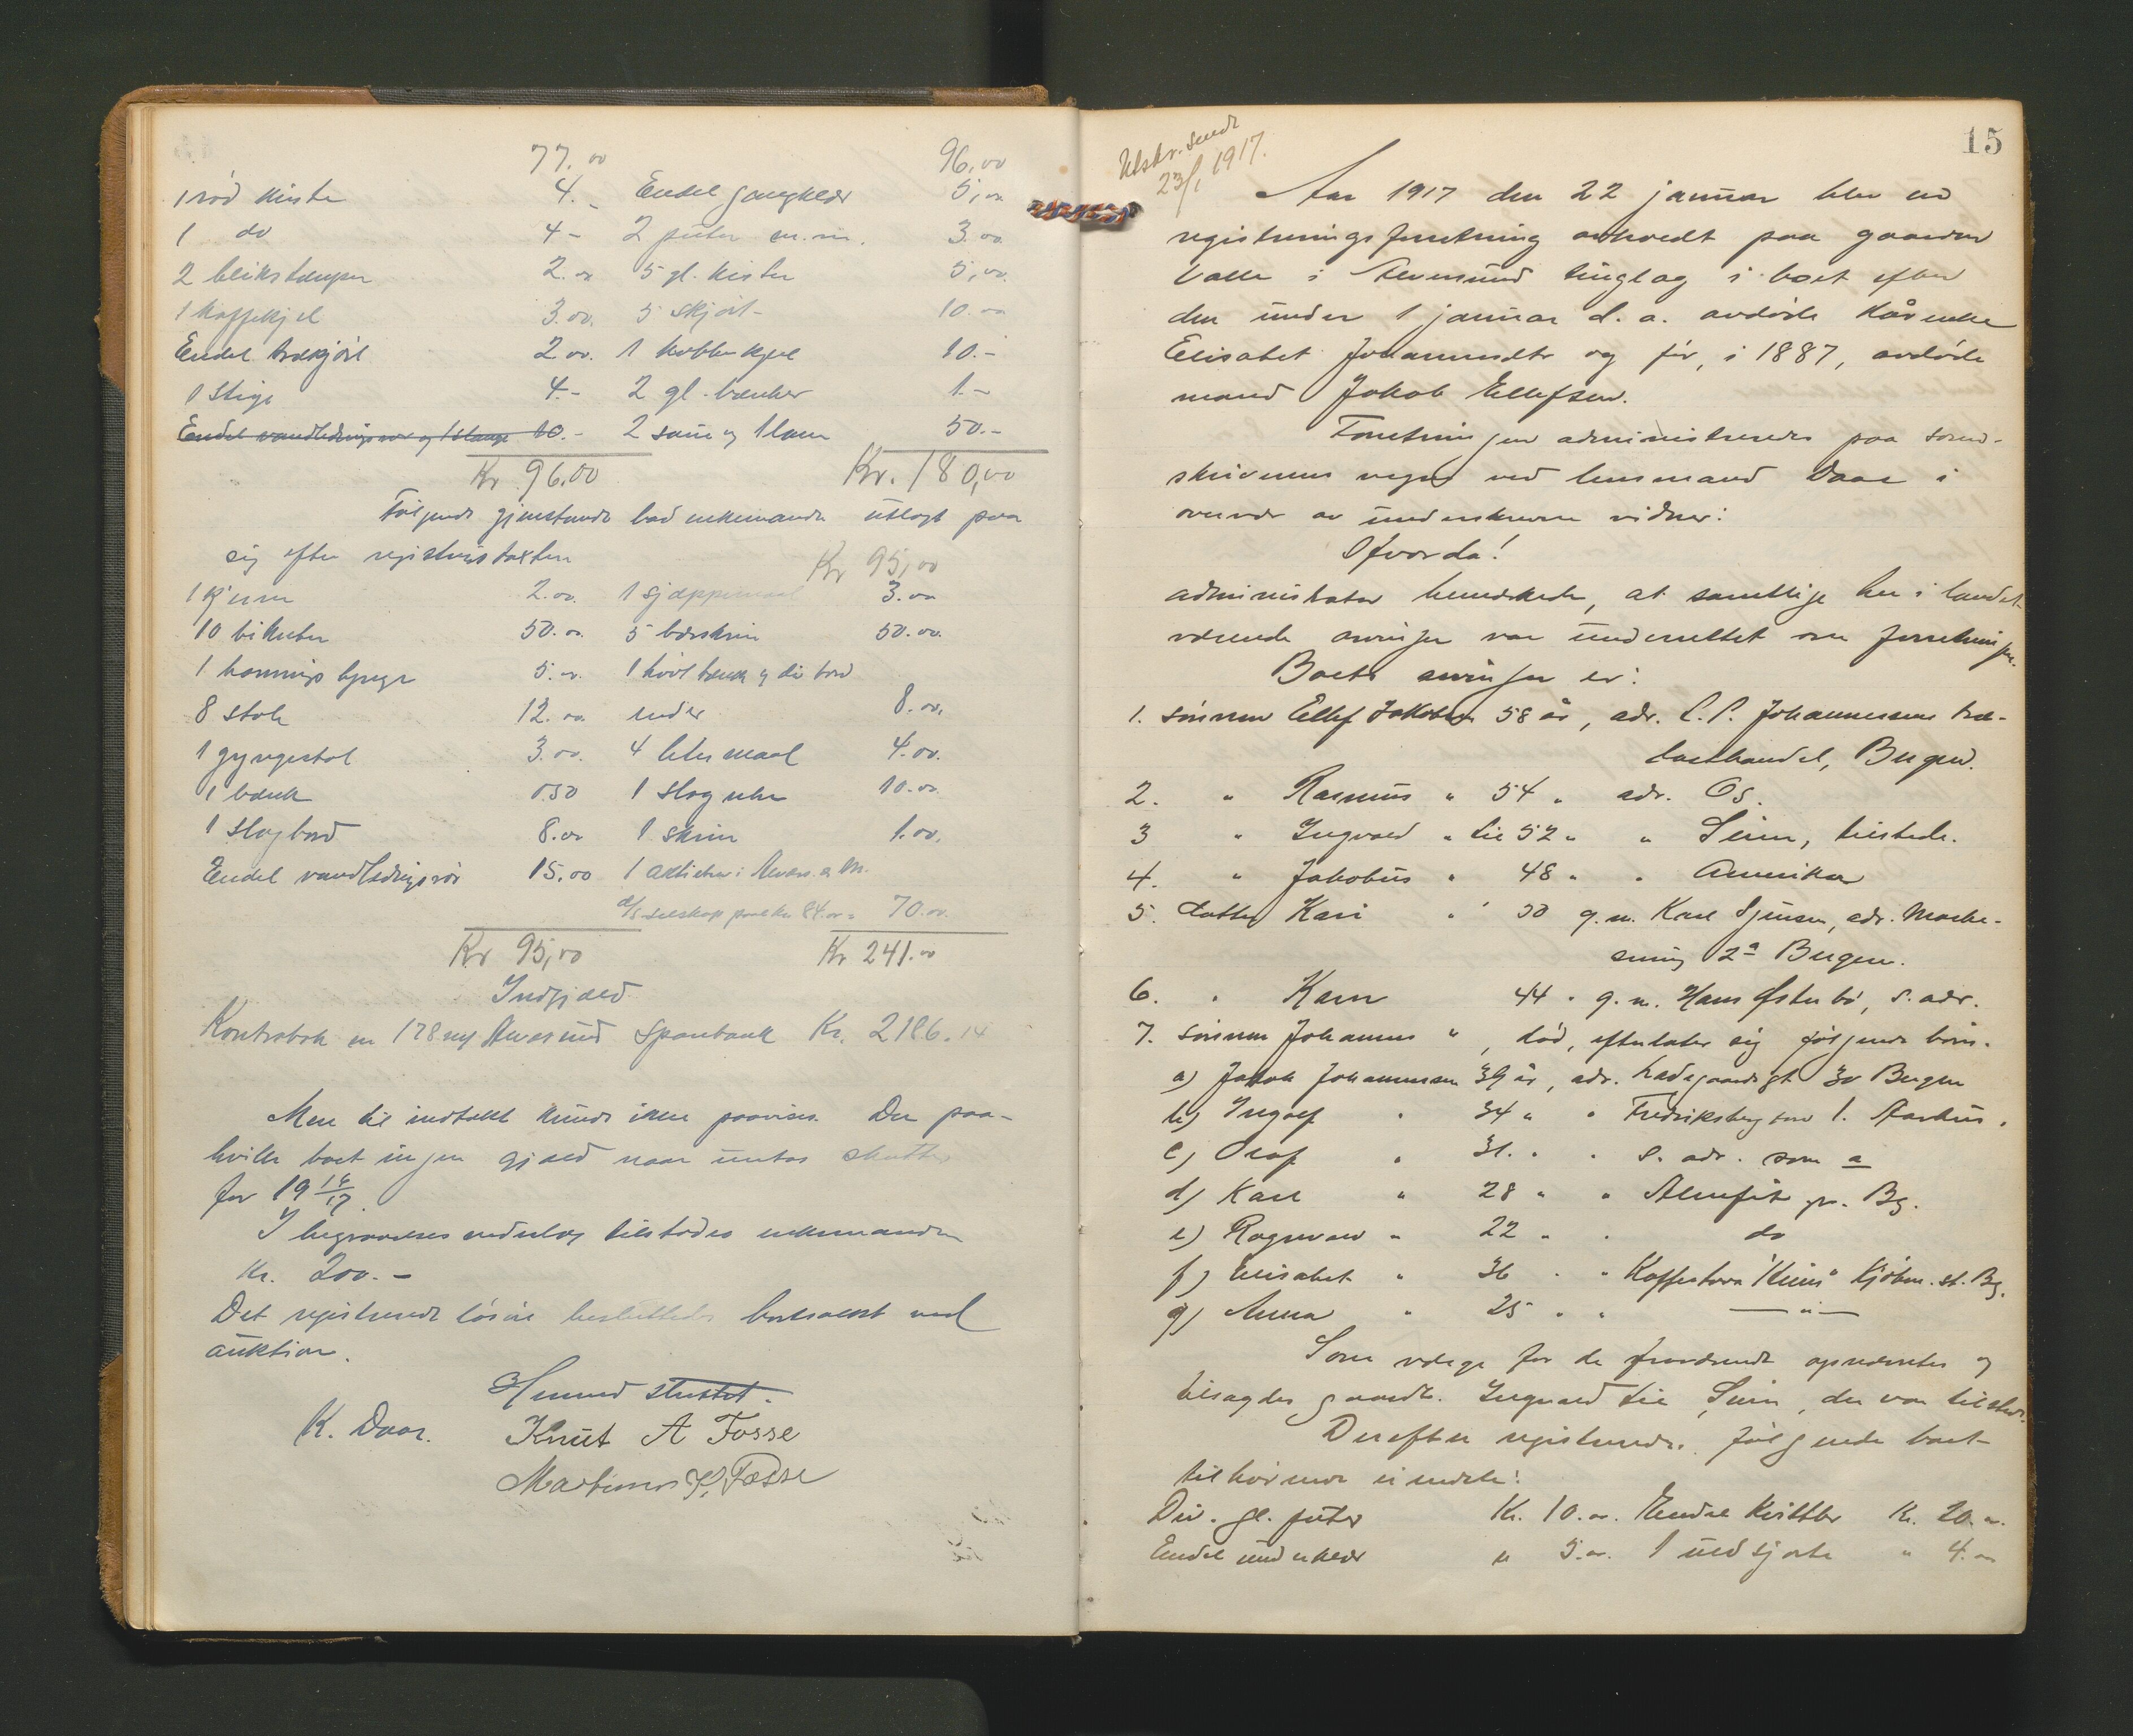 77.00 96.00
1 röd kiste 4.- Endel gangklær 5,00
1 do 4- 2 puter m.m. 3.00
2 blikstamper 2.00 5 gl. kister 5,00
1 kaffekjel 3.00. 5 skjört- 10.00
Endel trækjörl 2.00. 1 kobberkjel 10.-
1 Stige 4.- 2 gl. bænker 1.-
Endel vandledningsrör og 1 slange 10.- 2 saue og 1 lam 50.-
Kr 96.00 Kr. 180,00
Følgende gjenstande bad enkemanden utlagt paa
sig efter registrringstaxten Kr 95,00
1 kjerne 2.00. 1 sjæppemaal 3.00
10 bikuber 50.00 5 bærskrin 50.00.
1 honning 5.00. 1 hövlbænk og div bord
8 stole 12.00 8.00.
1 gyngestol 3.00. 4 liter maal 4.00.
1 bænk 0.50 1 Slag uhr 10.00
1 Slagbord 8.00 1 skrin 1.00.
Endel vandledningsrör 15.00 1 aktie i Alvers. & M.
a/s selskap 84.00 70.00.
Kr 95,00 Kr 241.00
Indgjæld
Kontrabok nr 178 Alversund Sparebank Kr. 2186.14
Mere til indtækt kunde ikke paavises. Der paa-
hviler boet ingen gjæld naar untas skatter
for 19 16/17.
I begravelses vederlag tilstodes enkemanden
Kr. 200.-
Det registrerede lösöre besluttedes bortsolgt ved
auktion.
Hermed sluttet.
K. Daae. Knut A Fosse
Martinus K. Fosse
15
Utskr. sendt
23/1 1917.
Aar 1917 den 22 januar blev en
registreringsforretning avholdt paa gaarden
Valle i Alversund tinglag i boet efter
den under 1 januar d. a. avdöde kårenke
Elisabet Johannesdtr og før, i 1887, avdöde
mand Jakob Ellefsen.
Forretningen administreredes paa soren-
skriverens vegne ved lensmand Daae i
overvær av underskrevne vidner:
Hvorda!
administrator bemerkede, at samtlige her i landet
værende arvinger var underrettet om forretningen.
Boets arvinger er:
1. sönnen Ellef Jakobsen 58 år, adr. C. P. Johannessens træ-
lasthandel, Bergen.
2. " Rasmus " 54 " adr. Os.
3 " Ingvald " Lie 52 " " Seim, tilstede.
4. " Jakobus " 48 " " Amerika
5. datter Kari " 50 g.m. Karl Sjursen, adr. Marke-
smug 12a Bergen.
6. " Karn 44 " g.m. Hans Østerbö, s. adr.
7. sönnen Johannes " , död, efterlater sig følgende börn.
a) Jakob Johannessen 39 år, adr. Ladegaardsgt 30 Bergen
b) Ingolf " 34 " " Fredriksberg 1. Aarhus.
c) Olaf " 31. " " s. adr. som a
d) Karl " 28 " " pr. Bg.
e) Ragnvald " 22 " " do
f) Elisabet " 36 " " Kaffestova "Heim" Kjöbm. st. Bg.
g) Anna " 25 " " — " —
Som værge for de fraværende opnævntes og
tilsagdes gaardbr. Ingvald Lie Seim, der var tilstede.
Derefter registreredes følgende boet
tilhörende eiendele:
Div. gl. puter Kr. 10.00. Endel kvitler Kr. 20.00.
Endel underklær " 5.00. 1 uldskjorte " 4.00